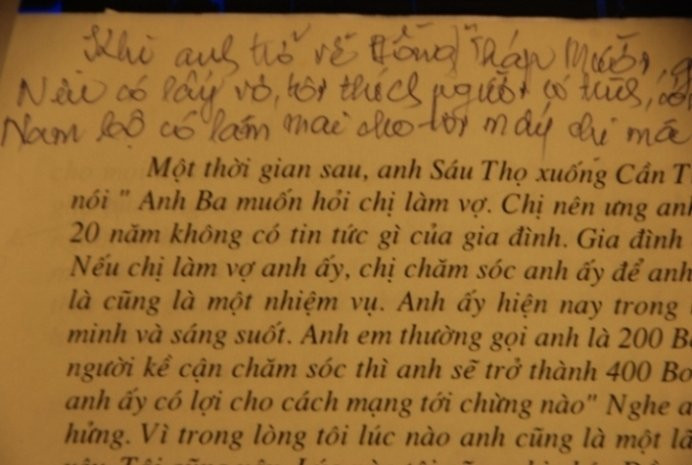 Khi anh trở về Đồng Tháp Mười,
Nếu có lấy vợ, tôi thích người có
Nam bộ có làm mai cho tôi mấy chị mà
Một thời gian sau, anh Sáu Thọ xuống Cần T
nói " Anh Ba muốn hỏi chị làm vợ. Chị nên ưng anh
20 năm không có tin tức gì của gia đình. Gia đình
Nếu chị làm vợ anh ấy, chị chăm sóc anh ấy để anh
là cũng là một nhiệm vụ. Anh ấy hiện nay trong
minh và sáng suốt. Anh em thường gọi anh là 200 B
người kề cận chăm sóc thì anh sẽ trở thành 400 Bo
anh ấy có lợi cho cách mạng tới chừng nào" Nghe a
hửng. Vì trong lòng tôi lúc nào anh cũng là một lã